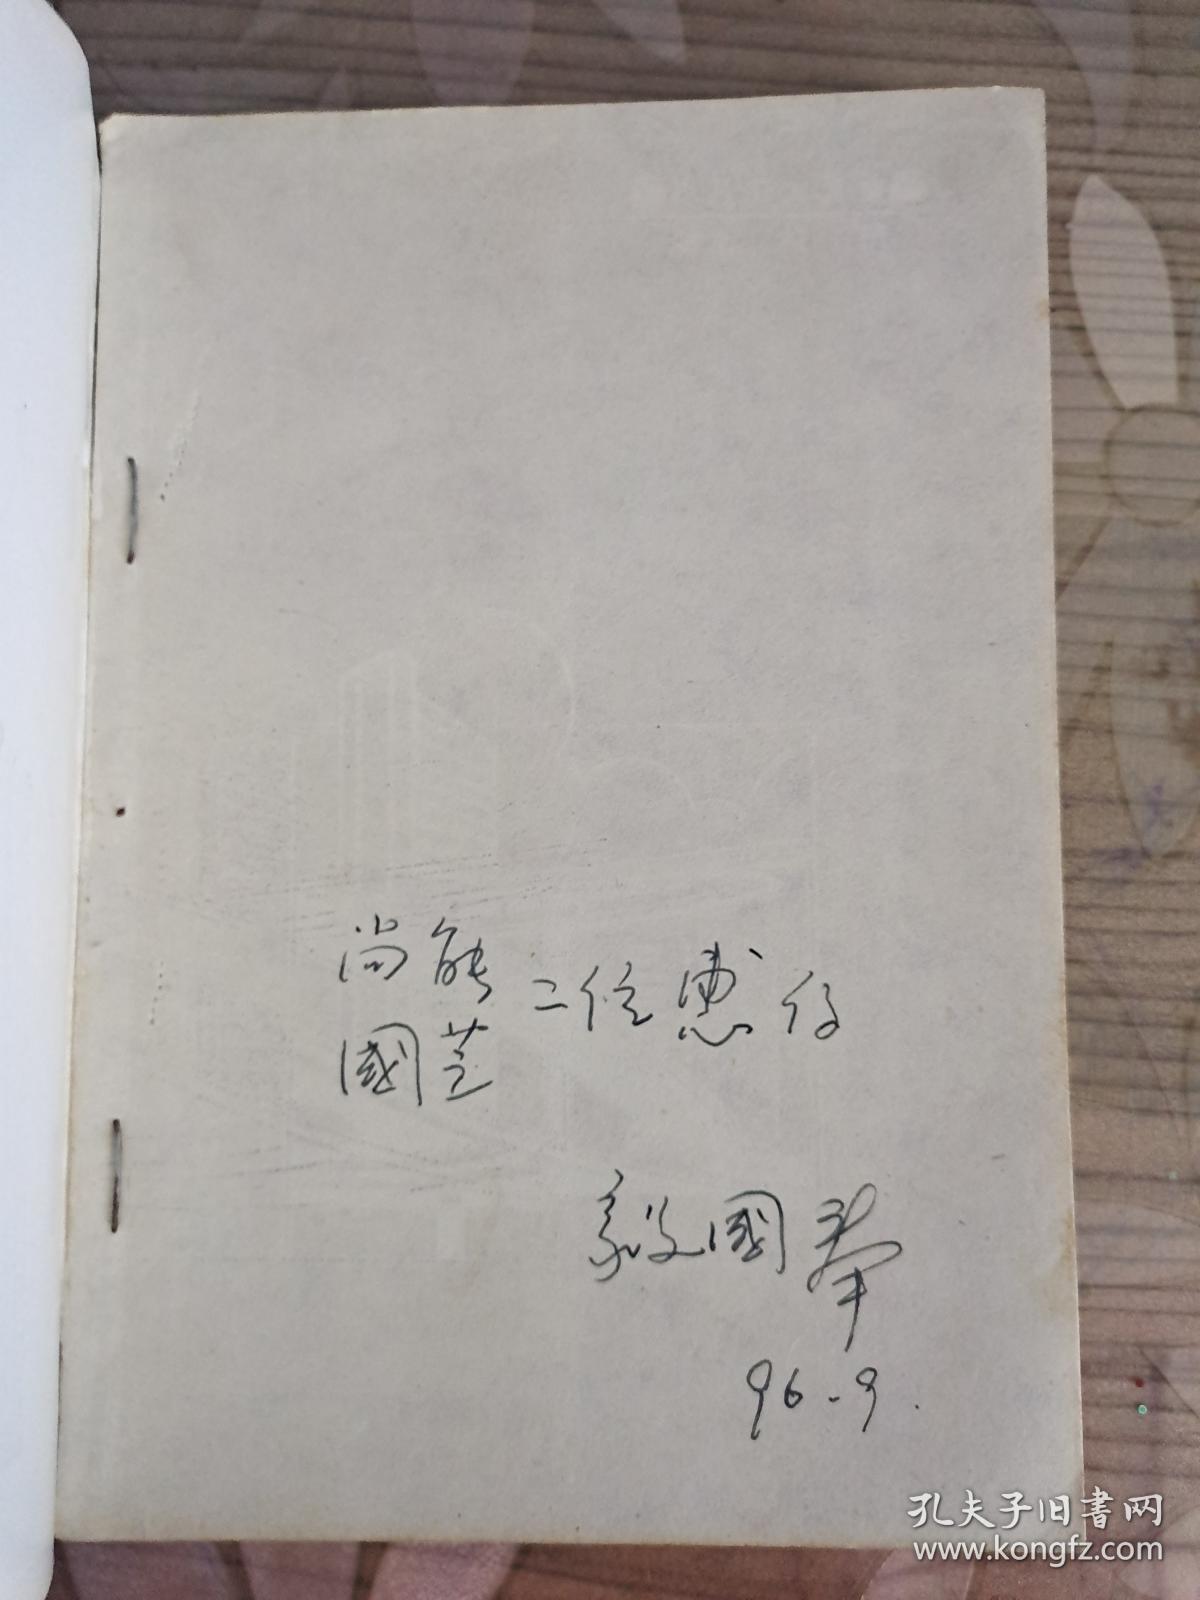 尚能
國芝
二位惠存
毅國奉
96-9.
孔夫子旧書网
www.kongfz.com